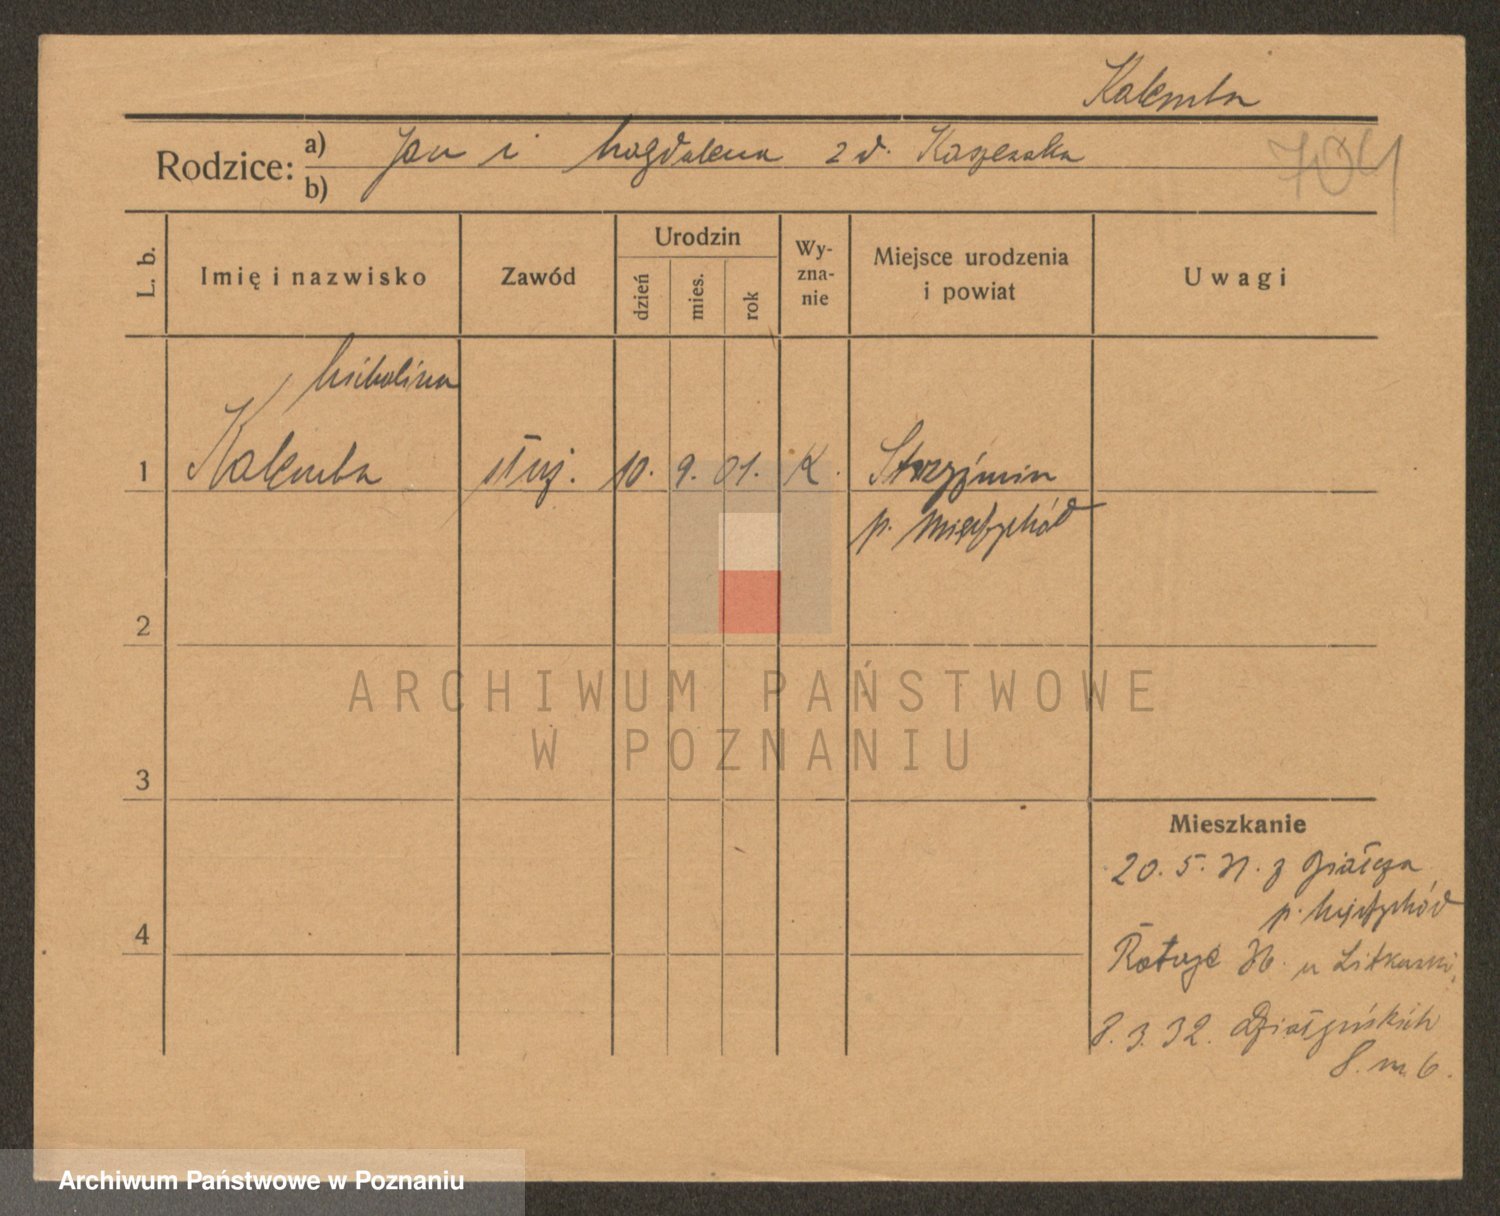 Kalemba
Rodzice: a) Jan i Magdalena z d. Kaszenska
b)
704
L. b.
Imię i nazwisko
Zawód
Urodzin
dzień
mies.
rok
Wy-
zna-
nie
Miejsce urodzenia
i powiat
Uwagi
Michalina
1 Kalemba służ. 10. 9. 01. K. Strzyżmin
p. Międzychód
2
3
4
Mieszkanie
20. 5. 31. z
p. Międzychód
u
8. 3. 32. Działyńskich
8. m. 6.
ARCHIWUM PAŃSTWOWE
W POZNANIU
Archiwum Państwowe w Poznaniu